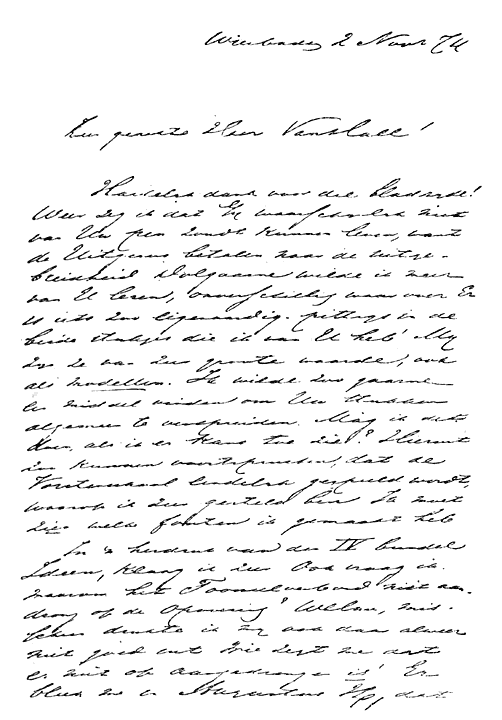 Wiesbaden 2 Novr 74
Zeer geachte Heer Van Hall!
Hartelyk dank voor die bladzyde!
Weer zeg ik dat Gy waarschynlyk niet
van Uw pen zoudt kunnen leven, want
de Uitgevers betalen naar de uitge-
breidheid Dolgaarne wilde ik meer
van U lezen, onverschillig waarover Er
is iets zoo eigenaardig-pittigs in de
beide stukjes die ik van U heb! My
zyn ze van zeer groote waarde, ook
als modellen. Ik wilde zoo gaarne
een middel vinden om Uw stukken
algemeen te verspreiden. Mag ik dit
doen, als ik er kans toe zie? Hieruit
zou kunnen voortspruiten, dat de
Vorstenschool eindelyk gespeeld wordt,
waarop ik zeer gesteld ben Ik moet
zien welke fouten ik gemaakt heb
In 'n herdruk van den IV bundel
Ideen, klaag ik zeer Ook vraag ik
waarom het Tooneelverbond niet aan-
drong op de Opvoering? Welnu, mis-
schien drukte ik my ook daar alweer
niet goed uit Wie zegt me dat
er niet op aangedrongen is! Er
bleek me in Augustus Hp, dat